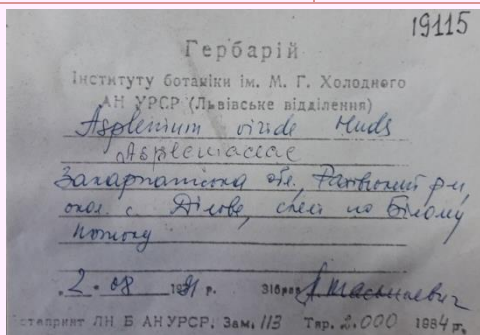 19115
Гербарій
Інституту ботаніки ім. М. Г. Холодного
АН УРСР (Львівське відділення)
Asplenium viride Huds
Aspleniaceae
Закарпатська обл., Рахівський р-н,
окол. с. Ділове, скелі по Білому
потоку
2. 08 1991 р. Зібрав
ЛН Б АН УРСР. Зам. 113 Тир. 2.000 1984 г.